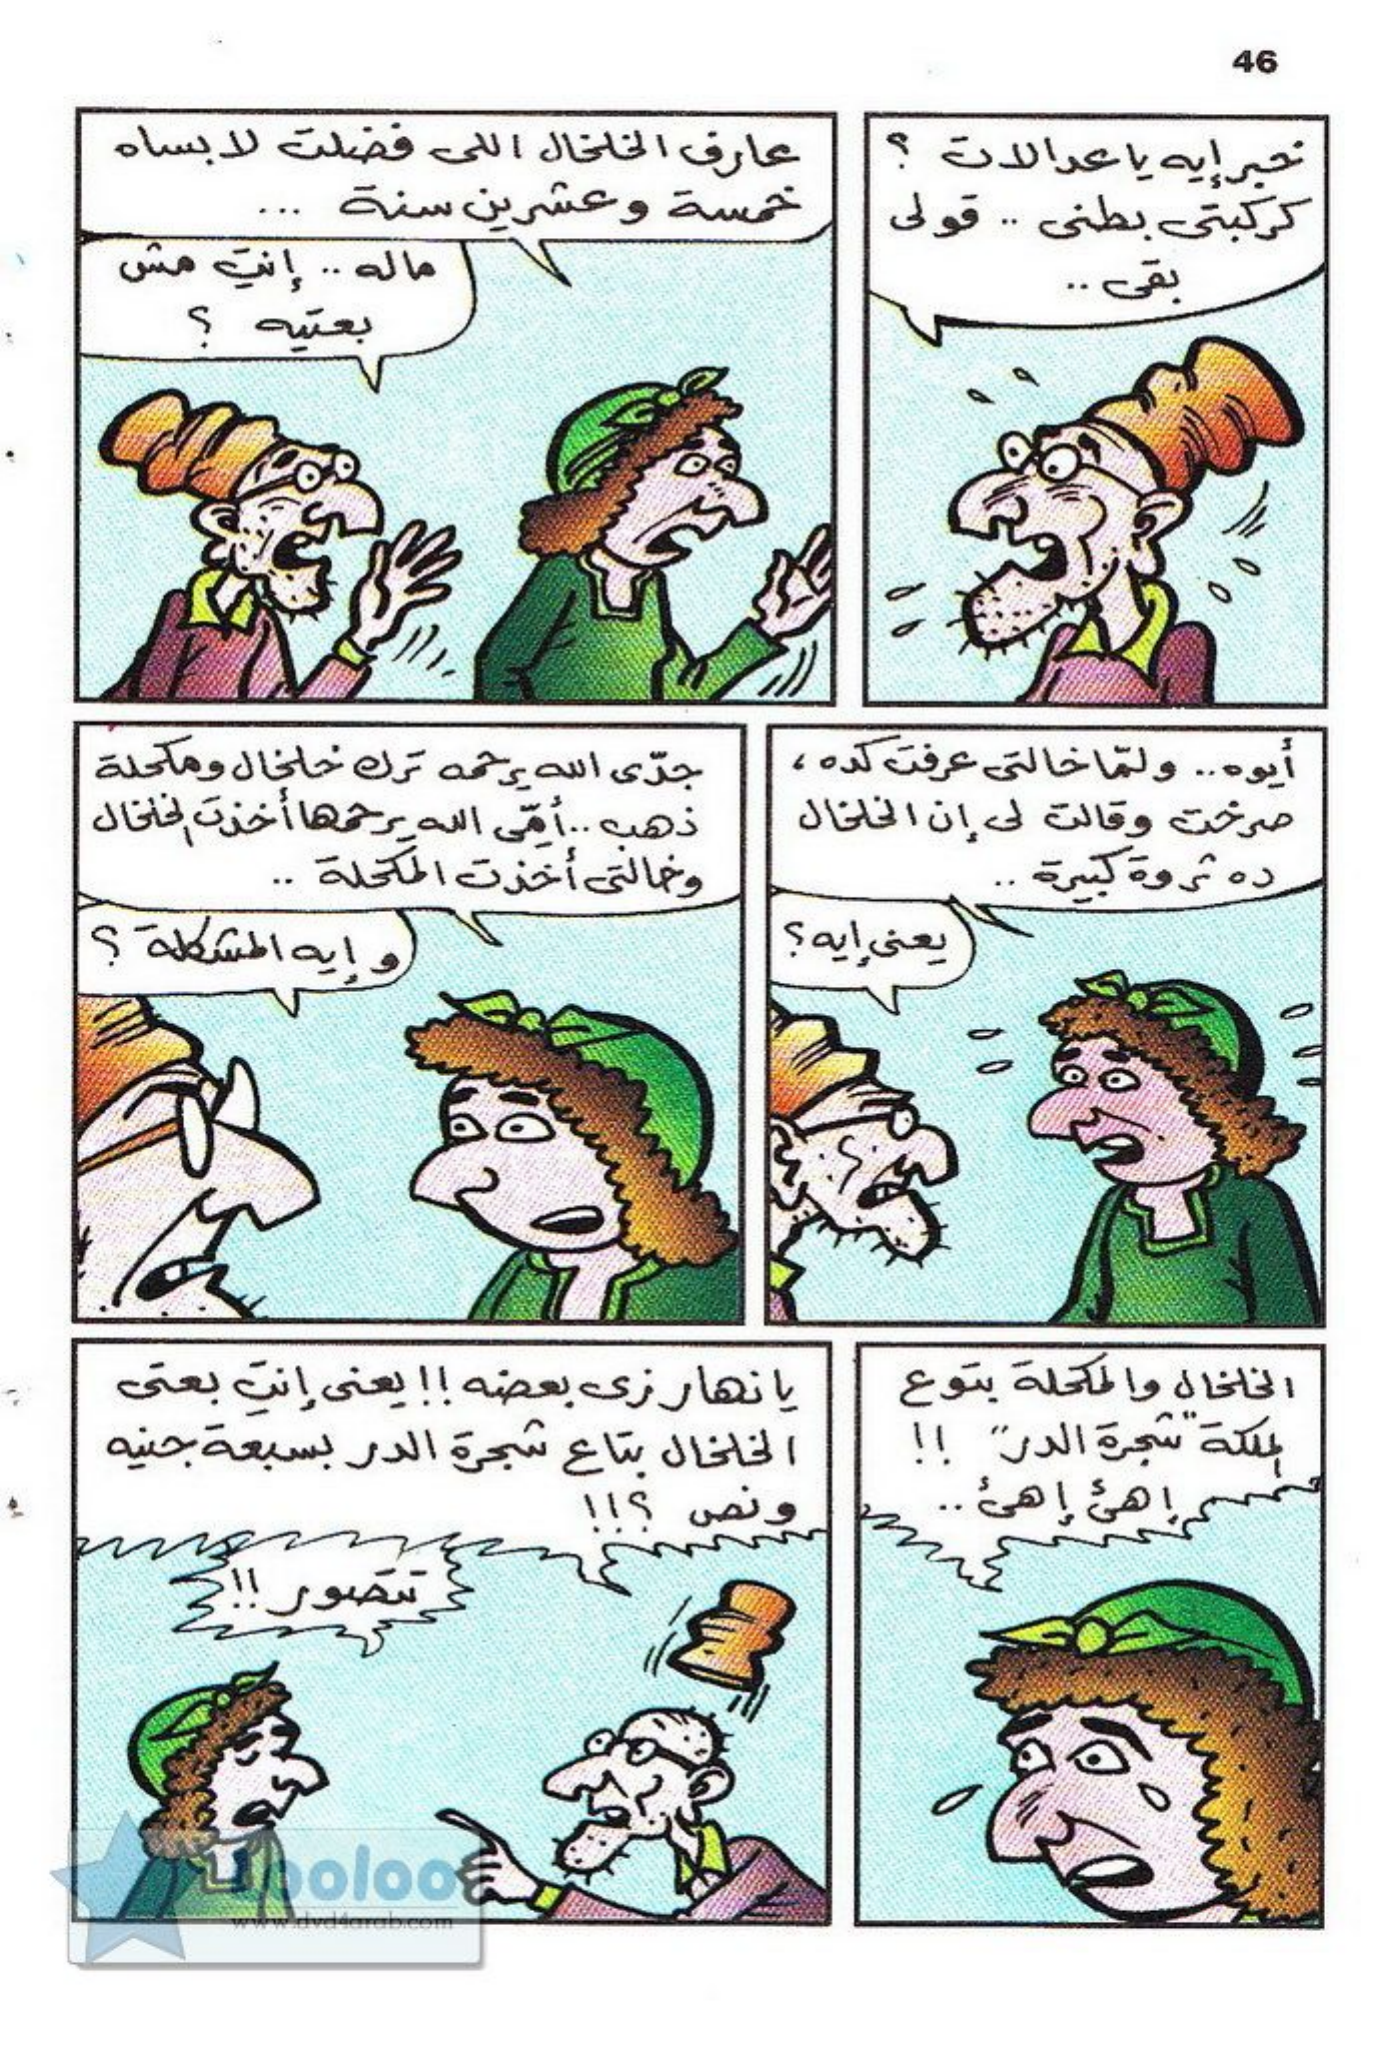 46
خبر إيه يا عدالات ؟
كركبتى بطنى .. قولى
بقى ..
عارف الخلخال اللى فضلت لابساه
خمسة وعشرين سنة ...
ماله .. إنتِ مش
بعتيه ؟
أيوه.. ولمّا خالتى عرفت كده،
صرخت وقالت لى إن الخلخال
ده ثروة كبيرة ..
يعنى إيه؟
جدّى الله يرحمه ترك خلخال ومكحلة
ذهب .. أمّى الله يرحمها أخذت الخلخال
وخالتى أخذت المكحلة ..
و إيه المشكلة ؟
الخلخال والمكحلة بتوع
الملكة "شجرة الدر" !!
إهئ إهئ ..
يا نهار زى بعضه !! يعنى إنتِ بعتى
الخلخال بتاع شجرة الدر بسبعة جنيه
ونص ؟!!
تتصور !!
looloo
www.dvd4arab.com